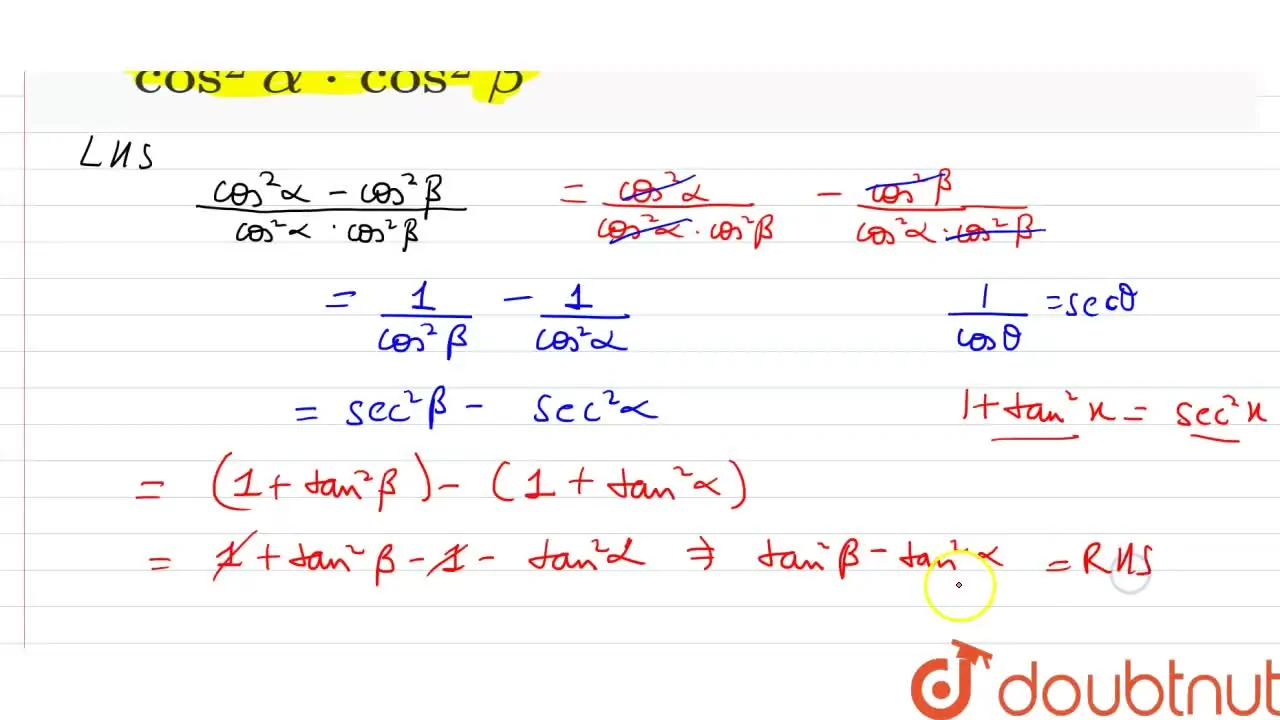 cos² α · cos² β
LHS
cos²α − cos²β / cos²α · cos²β = cos²α / cos²α · cos²β − cos²β / cos²α · cos²β
= 1 / cos²β − 1 / cos²α    1 / cosθ = secθ
= sec²β − sec²α    1 + tan²x = sec²x
= (1 + tan²β) − (1 + tan²α)
= 1 + tan²β − 1 − tan²α ⇒ tan²β − tan²α = RHS
doubtnut